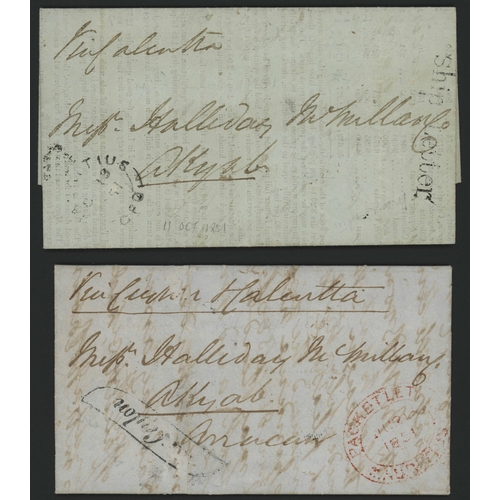 Via Calcutta
Ship Letter
Messrs. Halliday McMillan & Co
Akyab
MAURITIUS G.P.O.
11 OCT 1851
Via Ceylon & Calcutta
Messrs. Halliday McMillan &
Akyab
Arracan
Ceylon
PACKET LETTER
1851
MAURITIUS